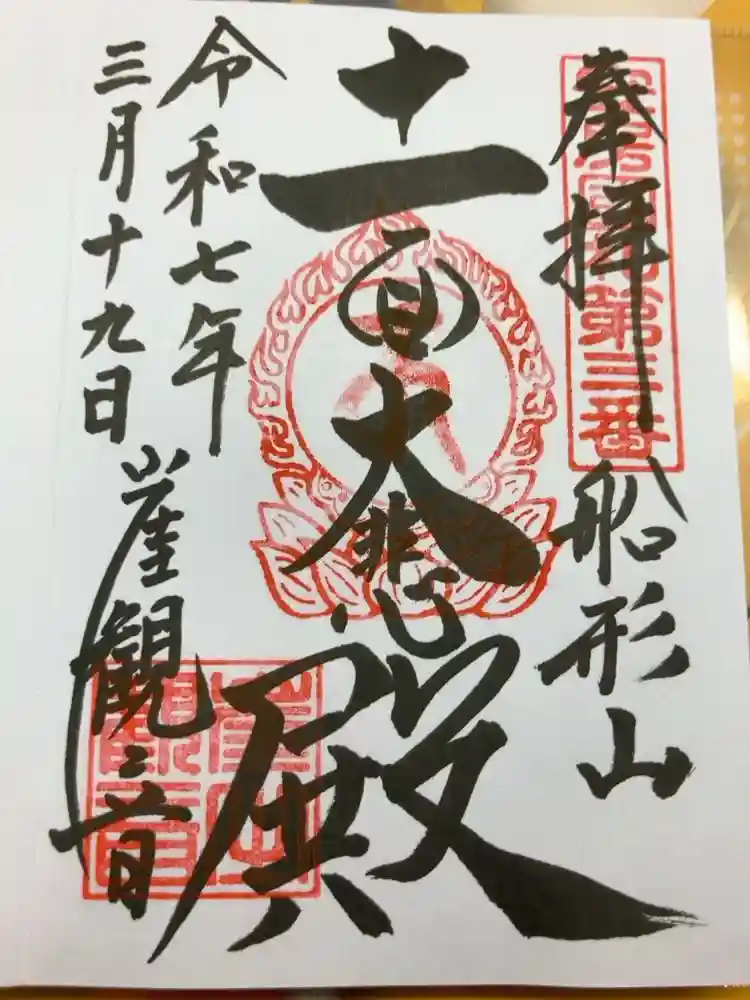 奉拝 船形山
第三番
十一面大悲殿
令和七年
三月十九日
崖観音